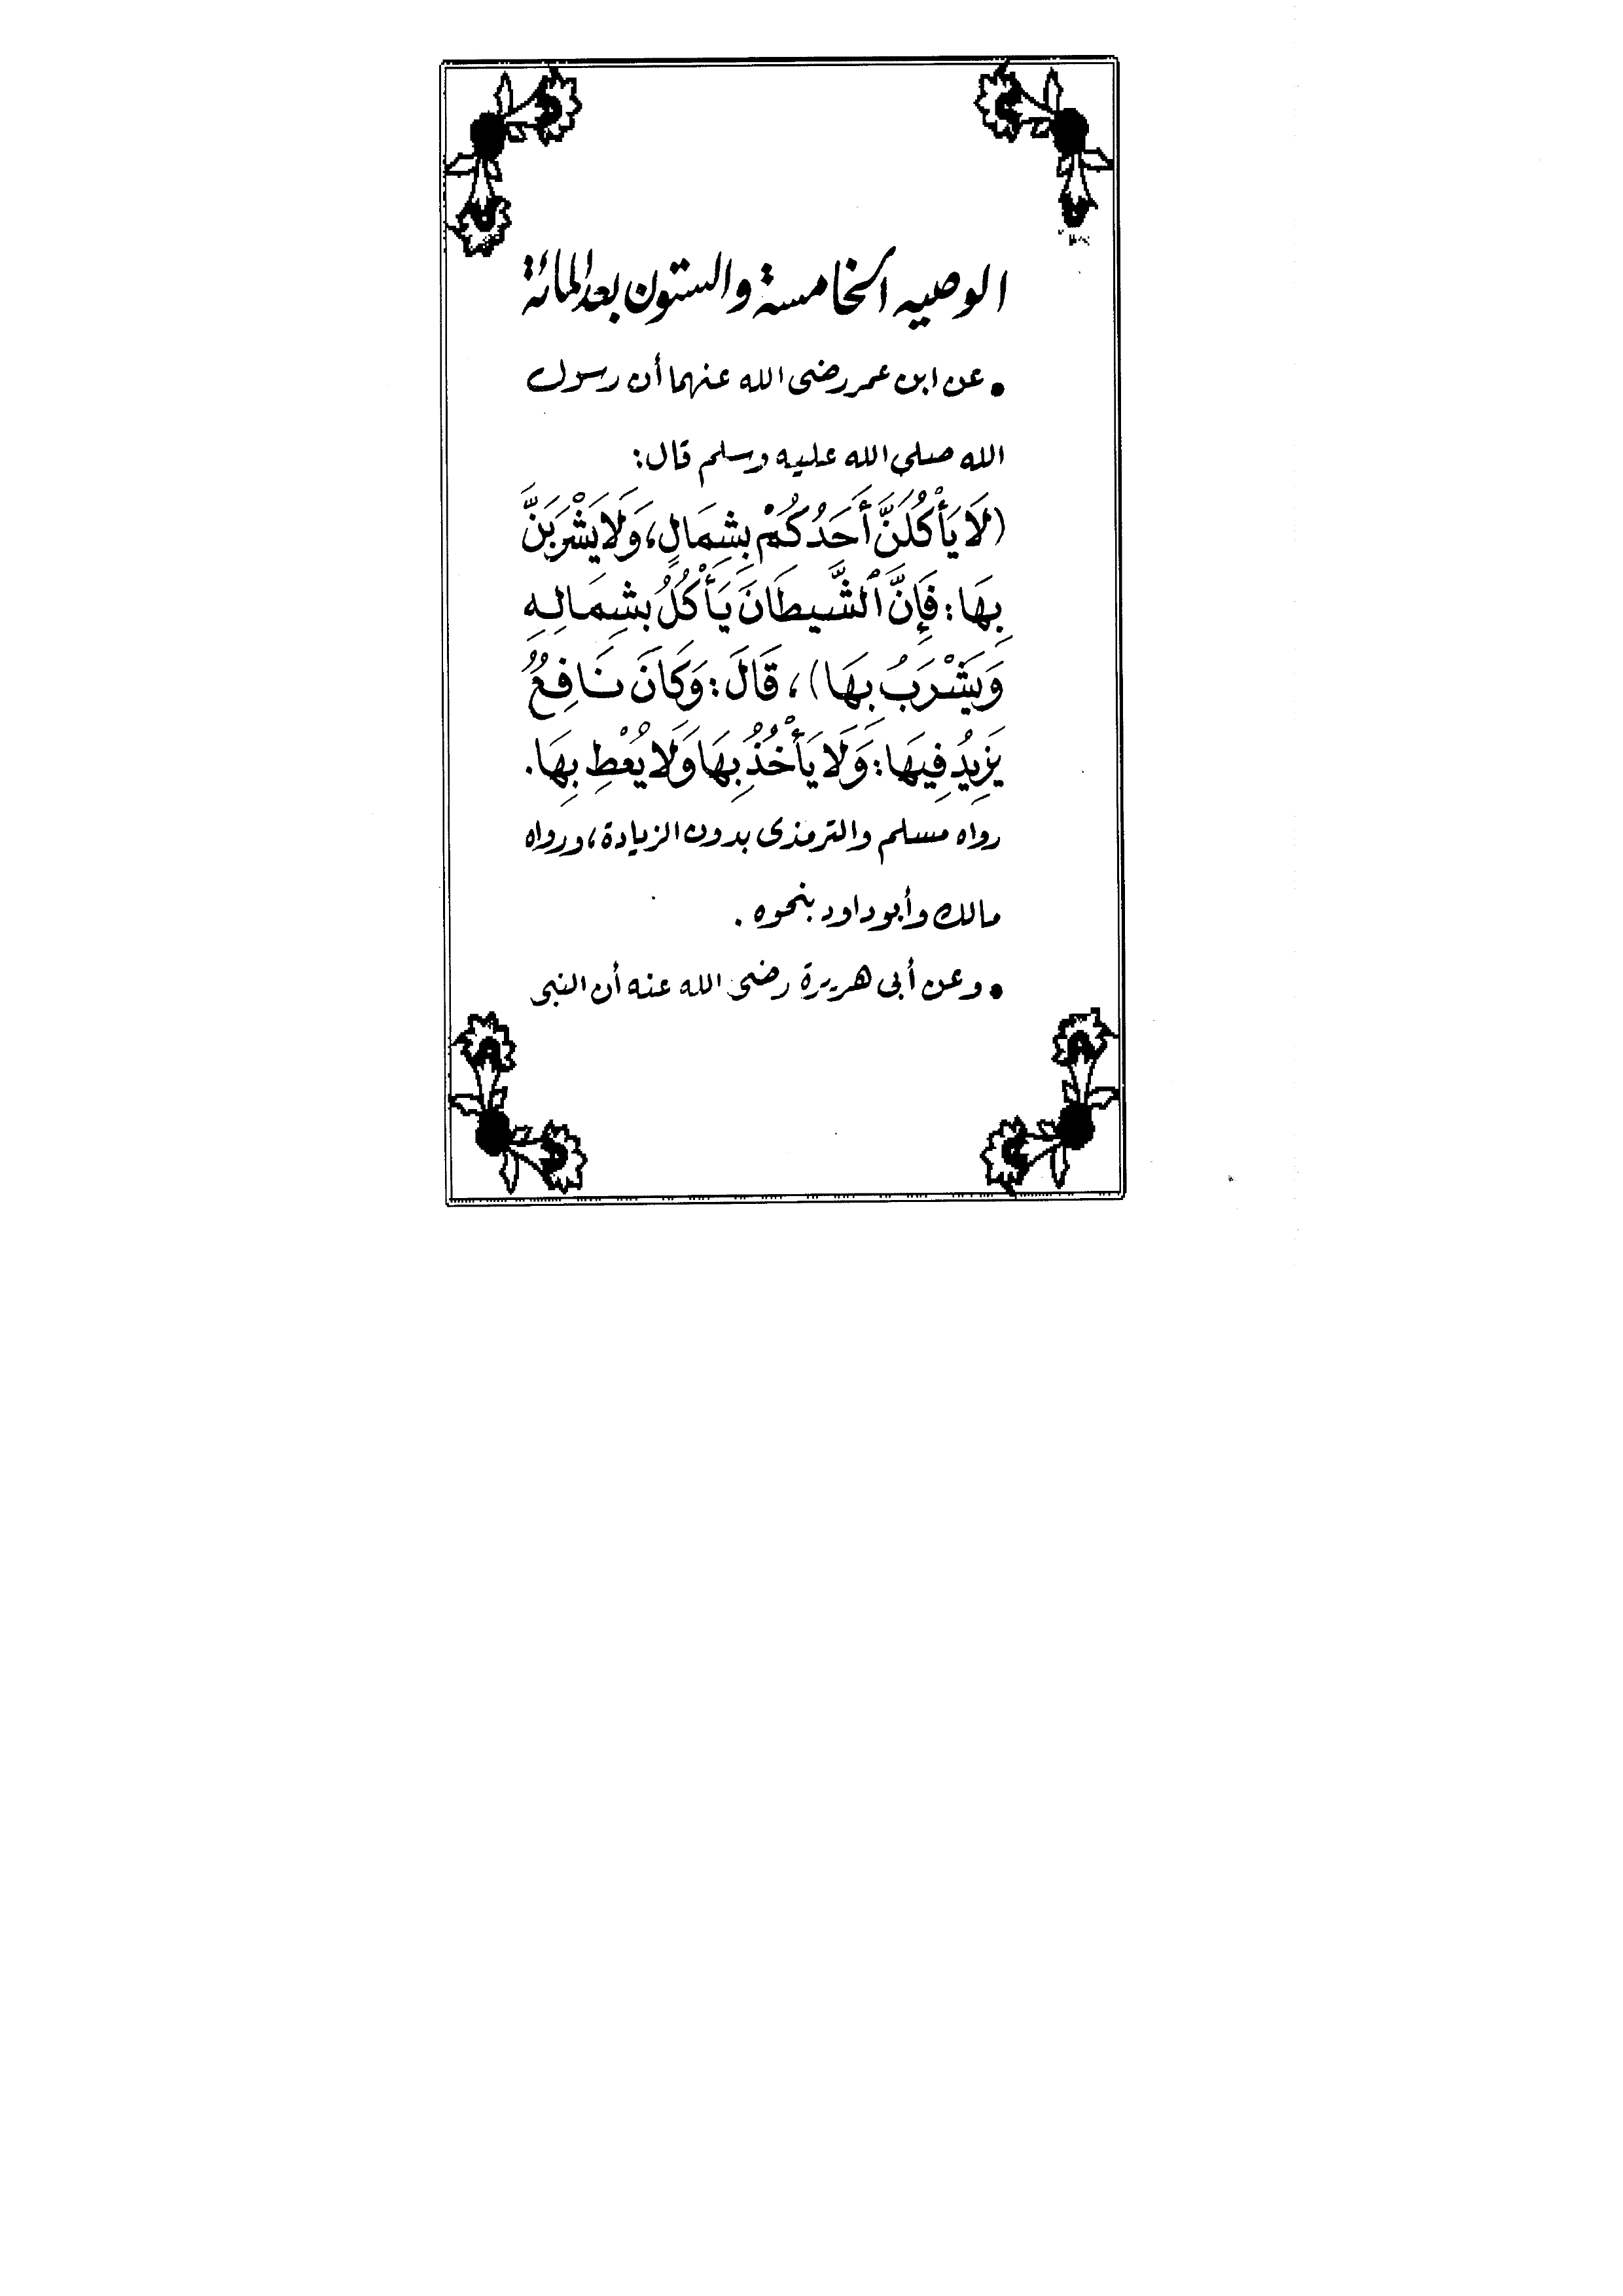 الوصيه الخامسة والستون بعد المائة
• عن ابن عمر رضى الله عنهما أن رسول
الله صلى الله عليه وسلم قال:
(لَا يَأْكُلَنَّ أَحَدُكُمْ بِشِمَالٍ، وَلَا يَشْرَبَنَّ
بِهَا: فَإِنَّ ٱلشَّيطَانَ يَأْكُلُ بِشِمَالِهِ
وَيَشْرَبُ بِهَا)، قَالَ: وَكَانَ نَافِعٌ
يَزِيدُ فِيهَا: وَلَا يَأْخُذُ بِهَا وَلَا يُعْطِ بِهَا.
رواه مسلم والترمذى بدون الزيادة، ورواه
مالك وأبو داود بنحوه.
• وعن أبى هريرة رضى الله عنه أن النبى